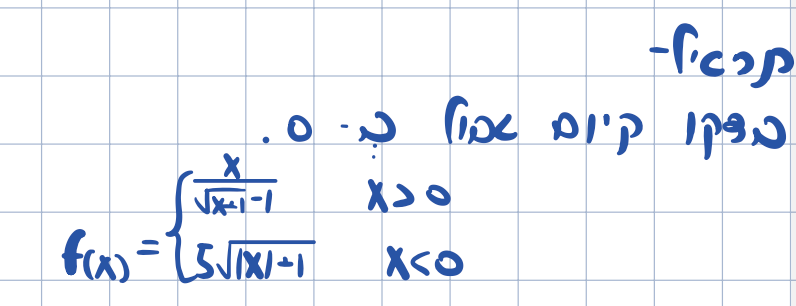 תרגיל-
בדקו קיום גבול ב- 0.
f(x) = { x/(√(x+1) - 1)   x>0
5√(|x|+1)   x<0